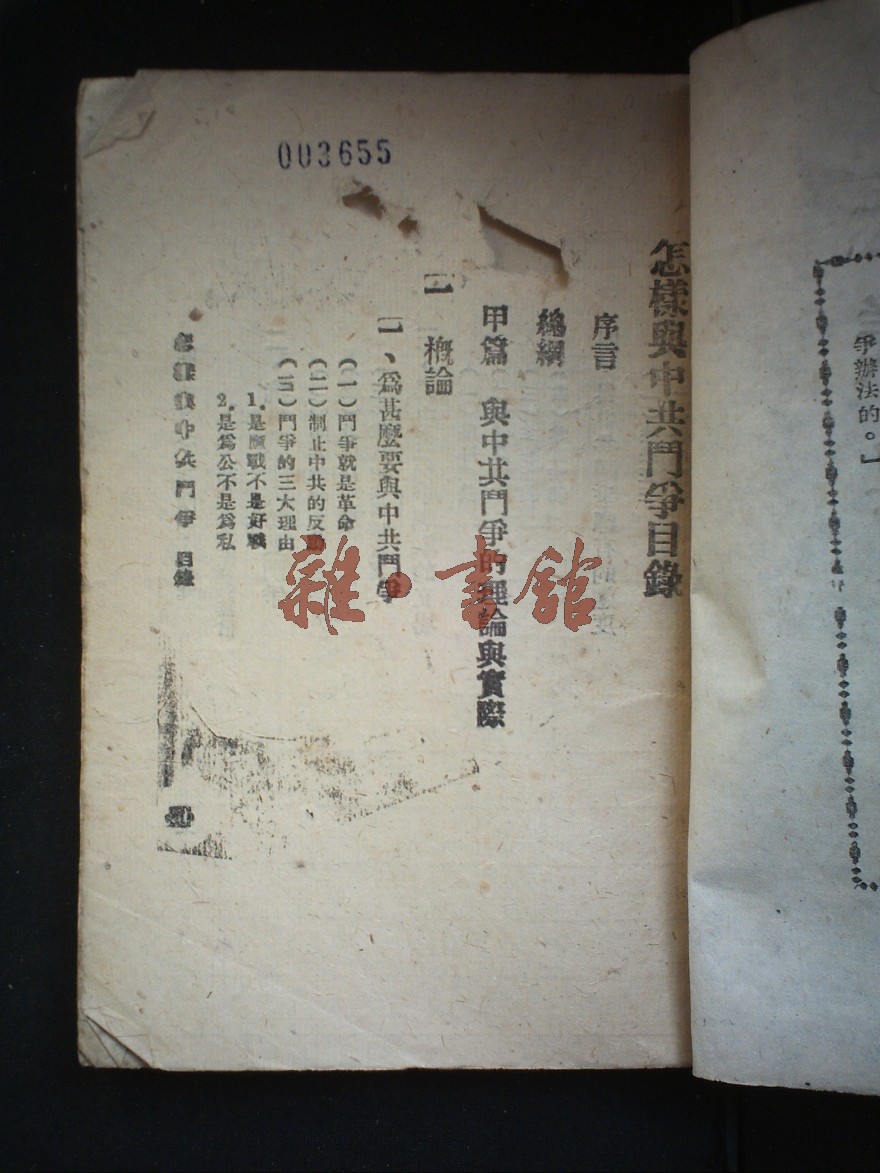 003655
怎樣與中共鬥爭目錄
序言
總綱
甲篇 與中共鬥爭的理論與實際
【一】概論
一、爲甚麼要與中共鬥爭
(一)鬥爭就是革命
(二)制止中共的反
(三)鬥爭的三大理由
1.是應戰不是好戰
2.是爲公不是爲私
怎樣與中共鬥爭 目錄
爭辦法的。」
雜·書館